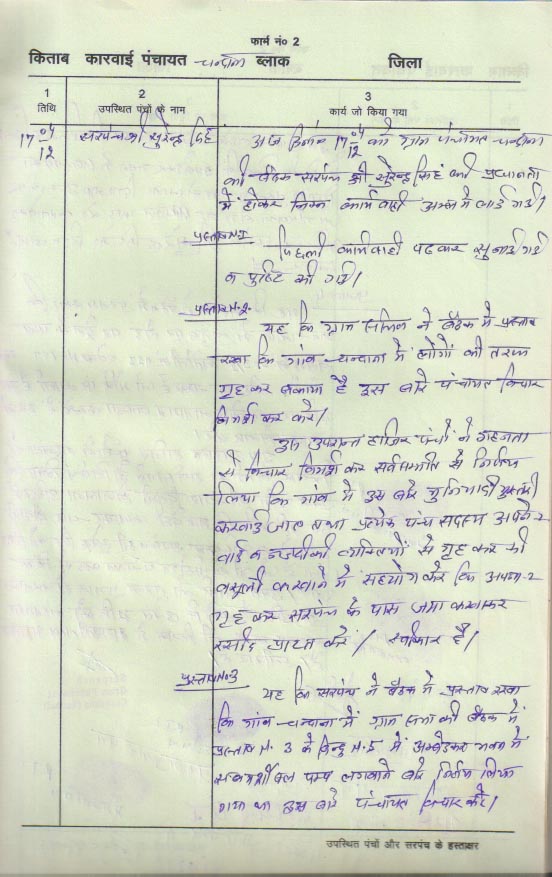 फार्म नं० 2
किताब कारवाई पंचायत चन्दाना ब्लाक जिला
1 2 3
तिथि उपस्थित पंचों के नाम कार्य जो किया गया
17 04/12 सरपंच श्री सुरेन्द्र सिंह आज दिनांक 17 04/12 को ग्राम पंचायत चन्दाना
की बैठक सरपंच श्री सुरेन्द्र सिंह की प्रधानता
में होकर निम्न कार्यवाही अमल में लाई गई।
प्रस्ताव नं.1 पिछली कार्यवाही पढ़कर सुनाई गई
व पुष्टि की गई।
प्रस्ताव नं.2 यह कि ग्राम सचिव ने बैठक में प्रस्ताव
रखा कि गांव चन्दाना में लोगों की तरफ
गृह कर बकाया है इस बारे पंचायत विचार
विमर्श कर करे।
उपरान्त हाजिर पंचों ने गहनता
से विचार विमर्श कर सर्वसम्मति से निर्णय
लिया कि गांव में इस बारे मुनियादी
करवाई जाए तथा प्रत्येक पंच सदस्य अपने-2
वार्ड व नजदीकी व्यक्तियों से गृह कर की
वसूली करवाने में सहयोग करे कि अपना-2
गृह कर सरपंच के पास जमा करवाकर
रसीद प्राप्त करें। स्वीकार है।
प्रस्ताव नं.3 यह कि सरपंच ने बैठक में प्रस्ताव रखा
कि गांव चन्दाना में ग्राम सभा की बैठक में
प्रस्ताव नं. 3 के बिन्दु नं.5 में अम्बेडकर भवन में
सबमर्सीबल पम्प लगवाने बारे निर्णय लिया
गया था इस बारे पंचायत विचार करे।
उपस्थित पंचों और सरपंच के हस्ताक्षर